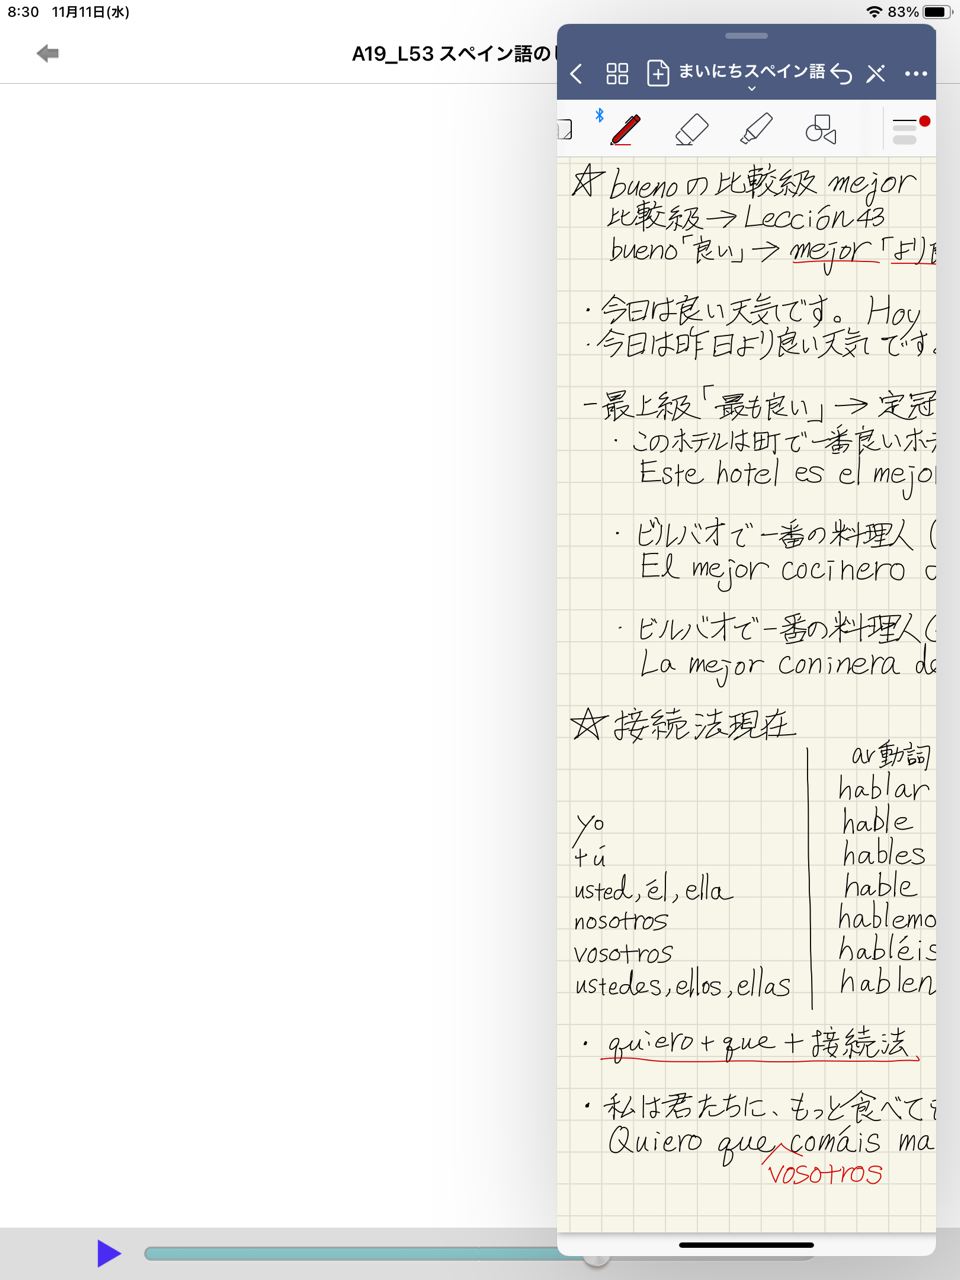 8:30 11月11日(水) 83%
A19_L53 スペイン語の
まいにちスペイン語
☆ buenoの比較級 mejor
比較級→Lección 43
bueno「良い」→ mejor「より
・今日は良い天気です。 Hoy
・今日は昨日より良い天気です。
－最上級「最も良い」→ 定冠
・このホテルは町で一番良いホテ
Este hotel es el mejo
・ビルバオで一番の料理人(
El mejor cocinero d
・ビルバオで一番の料理人(
La mejor coninera de
☆ 接続法現在
ar動詞
hablar
yo hable
tú hables
usted, él, ella hable
nosotros hablemo
vosotros habléis
ustedes, ellos, ellas hablen
・quiero + que + 接続法
・私は君たちに、もっと食べても
Quiero que comáis ma
vosotros